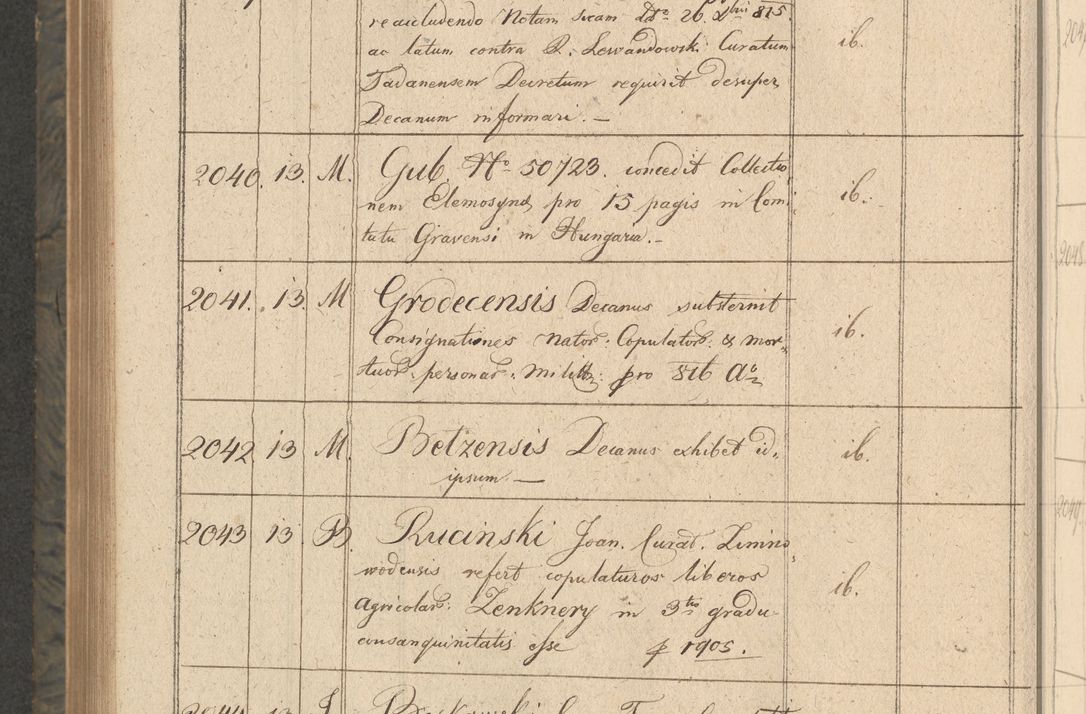 reaccludendo Notam suam ddo 26 Xbris 815.
ac latum contra R. Lewandowski Curatum ib.
Tadanensem Decretum requirit desuper
Decanum informari. —
2040. 13. M. Gub. No 50723. concedit Collectio
nem Elemosynæ pro 15 pagis in Comi ib.
tatu Gravensi in Hungaria. —
2041. 13. M Grodecensis Decanus substernit
Consignationes Nator: Copulator: & mor ib.
tuor: personar: militt: pro 816 Ao
2042 13 M. Betzensis Decanus exhibet id, ib.
ipsum. —
2043 13 B. Rucinski Joan. Curat. Zimno
wodensis refert copulaturos liberos
Agricolar: Zenknery in 3tio gradu ib.
consanquinitatis esse p 1905.
2044 13